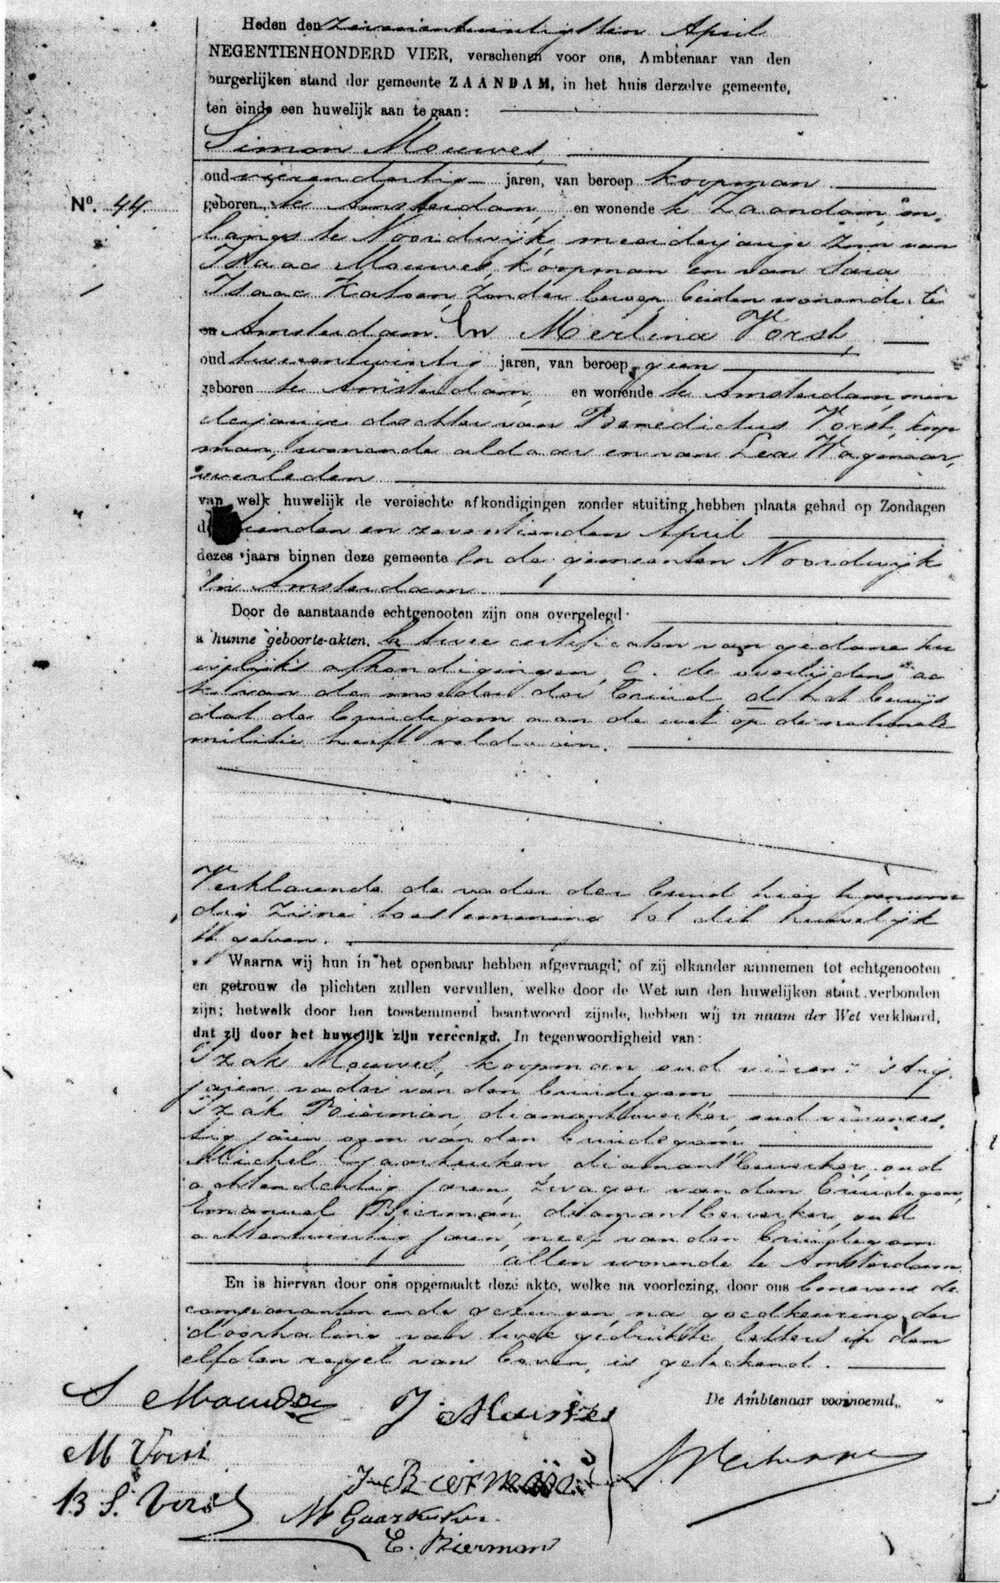 Heden den zevenentwintigsten April
NEGENTIENHONDERD VIER, verschenen voor ons, Ambtenaar van den
burgerlijken stand der gemeente ZAANDAM, in het huis derzelve gemeente,
ten einde een huwelijk aan te gaan:
Simon Mouwes,
oud vierendertig jaren, van beroep koopman
No. 44.
geboren te Amsterdam, en wonende te Zaandam en
laatst te Noordwijk, meerderjarige zoon van
Isaac Mouwes, koopman en van Sara
Isaac Katoen, zonder beroep, beiden wonende te
Amsterdam. En Merlina Vorst,
oud tweeentwintig jaren, van beroep geen
geboren te Amsterdam, en wonende te Amsterdam, min
derjarige dochter van Benedictus Vorst, koop
man, wonende aldaar en van Lea Wagenaar,
overleden
van welk huwelijk de vereischte afkondigingen zonder stuiting hebben plaats gehad op Zondagen
den tienden en zeventienden April
dezes jaars binnen deze gemeente en de gemeenten Noordwijk
en Amsterdam.
Door de aanstaande echtgenooten zijn ons overgelegd:
a hunne geboorte-akten, b twee certificaten van gedane hu
welijks afkondigingen, c. de overlijdens ac
te van de moeder der bruid, d. het bewijs
dat de bruidegom aan de wet op de nationale
militie heeft voldaan.
Verklarende de vader der bruid hier tegenwoor
dig zijne toestemming tot dit huwelijk
te geven.
Waarna wij hun in het openbaar hebben afgevraagd, of zij elkander aannemen tot echtgenooten
en getrouw de plichten zullen vervullen, welke door de Wet aan den huwelijken staat verbonden
zijn; hetwelk door hen toestemmend beantwoord zijnde, hebben wij in naam der Wet verklaard,
dat zij door het huwelijk zijn vereenigd. In tegenwoordigheid van:
Izak Mouwes, koopman oud
jaren, vader van den bruidegom,
Izak Bierman, diamantbewerker, oud vierenzes
tig jaren oom van den bruidegom
Michel Gaarkeuken, diamantbewerker, oud
achtendertig jaren, zwager van den bruidegom,
Emanuel Bierman, diamantbewerker, oud
achtentwintig jaren, neef van den bruidegom
allen wonende te Amsterdam.
En is hiervan door ons opgemaakt deze akte, welke na voorlezing, door ons benevens de
comparanten en de getuigen, na goedkeuring der
doorhaling van twee gedrukte letters in den
elfden regel van boven, is geteekend.
S Mouwes J Mouwes De Ambtenaar voornoemd,
M Vorst
J Bierman
B S. Vorst M Gaarkeuken
E. Bierman